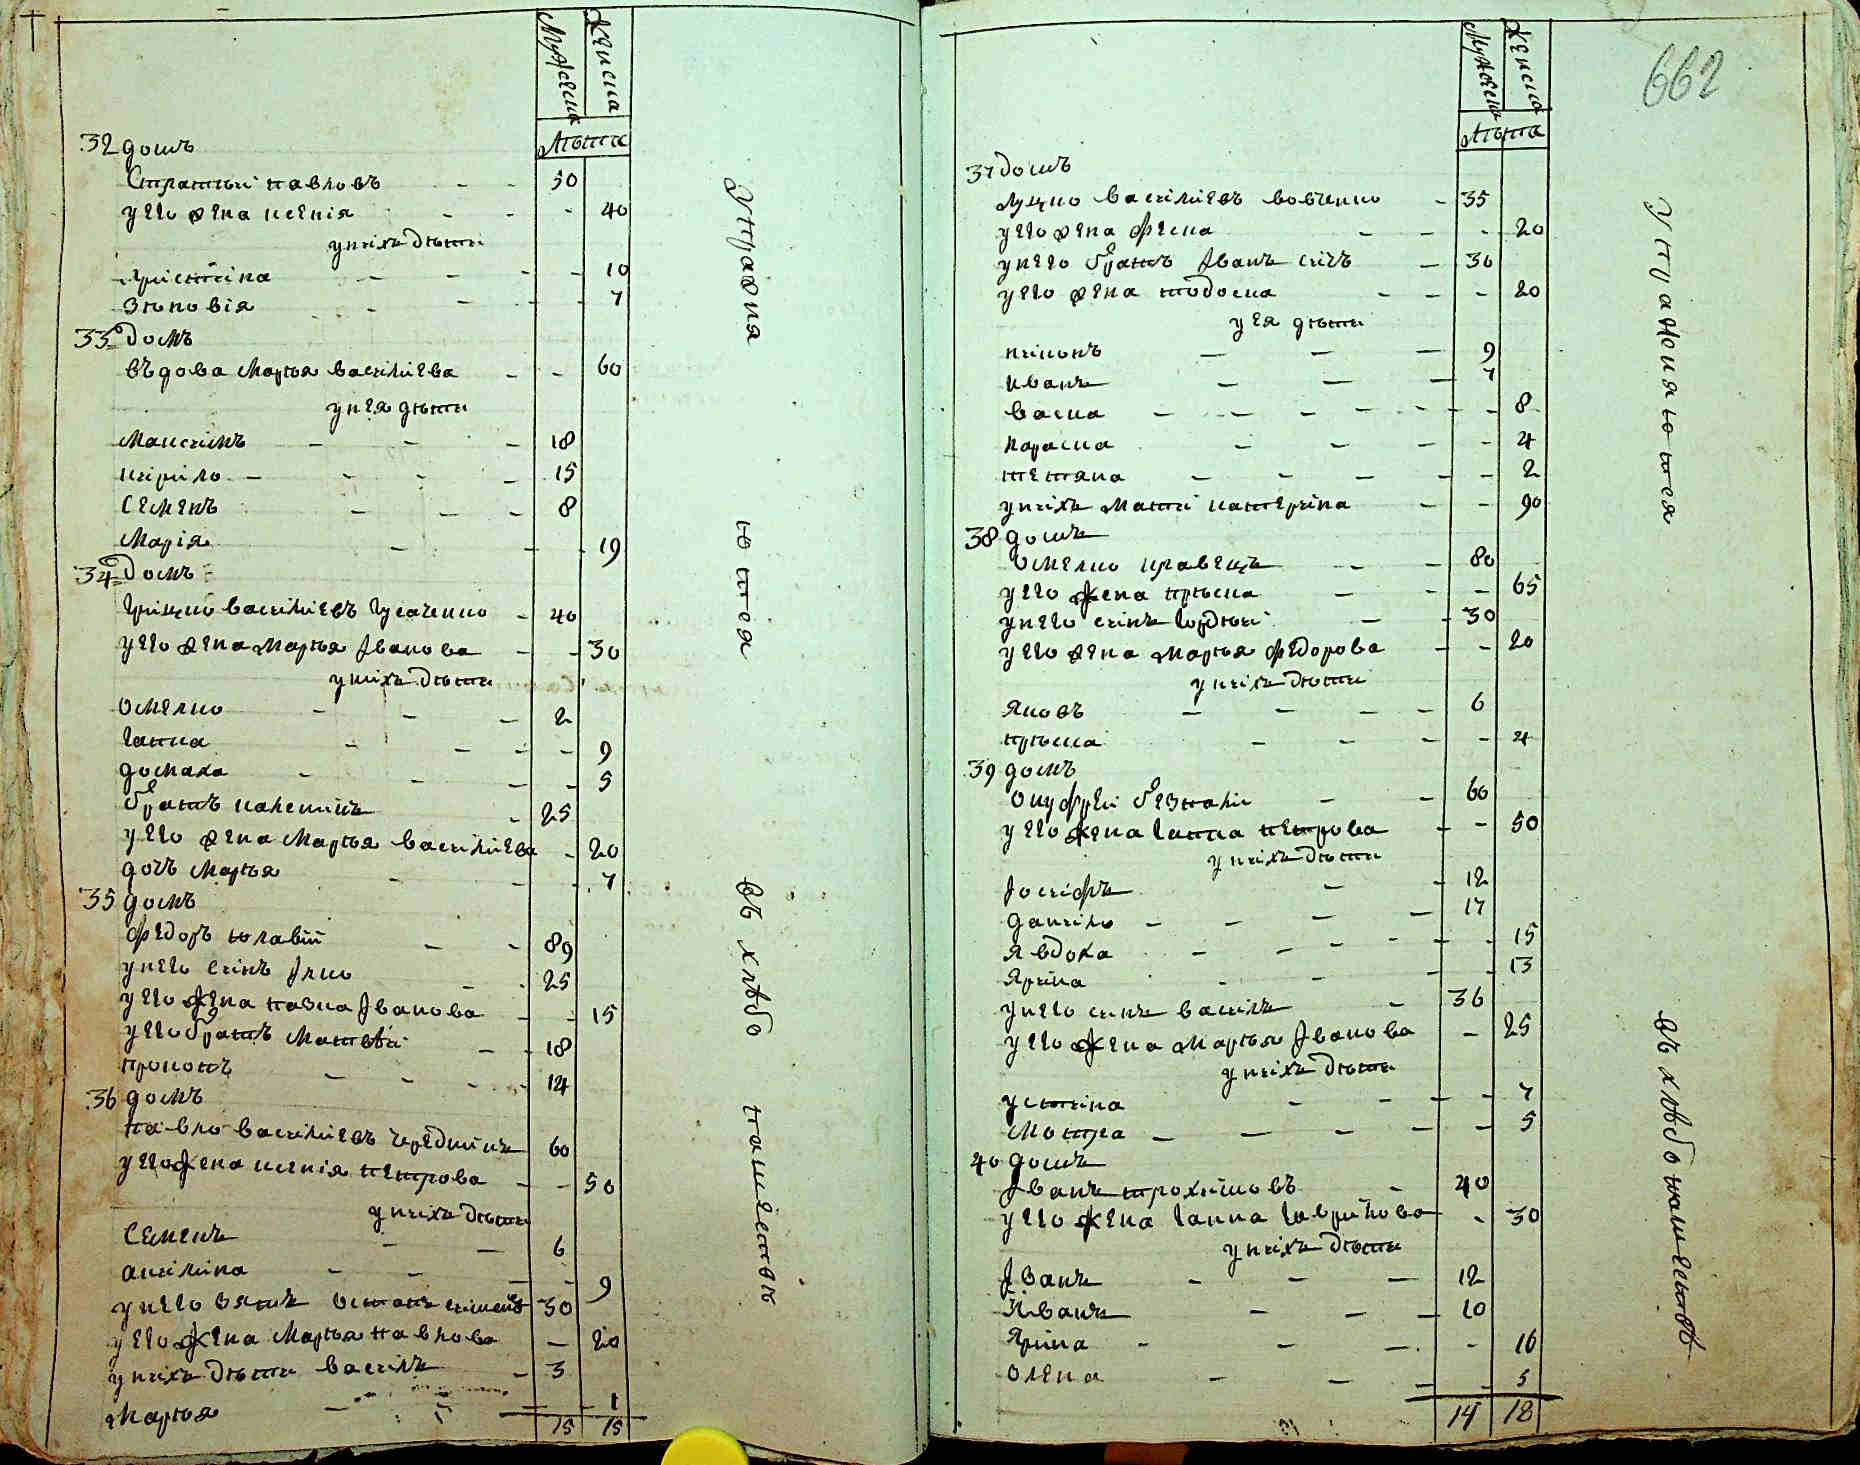 Мужеска
Женска
лѣта
32 домъ
Стратий павловъ - - 50
у его жена ксенія - - - 40
у нихъ дѣти
Христина - - - - 10
Зѣновія - - - - 7
33 домъ
въдова Марѳя василиева - - 60
у нея дѣти
Максимъ - - - 18
кирило - - - - 15
Семенъ - - - 8
Марія - - - 19
34 Домъ
Грицко василиевъ Гусаченко - 40
у его жена Марѳя Іванова - - 30
у нихъ дѣти
омелко - - - 2
Ганна - - - - 9
домаха - - - - 5
братъ калениκъ - 25
у его жена Марѳя василиева - 20
дочъ Марѳя - - - 7
35 домъ
Федоръ 89
у него синъ Јлко - - 25
у его жена пазка Јванова - - 15
у его братъ Матвѣй - - 18
прокопъ - - - - 14
36 домъ
павло василиевъ Чредникъ 60
у его жена ксенія петрова - - 50
у нихъ дѣти
Семенъ - - 6
акилина - - - - 9
у него зять остапъ 30
у его жена Марѳя павлова - 20
у нихъ дѣти василь - 3
Марѳя - - - 1
15 15
Упражняютося въ хлѣбопашествѣ
662
Мужеска
Женска
лѣта
37 домъ
Луцко василиевъ вовченко - 35
у его жена феска - - - 20
у него братъ Јванъ сичъ - 30
у его жена тодоска - - - 20
у ея дѣти
никонъ - - - 9
иванъ - - - 7
васка - - - - - - - - 8
параска - - - - 4
тетяна - - - - - - 2
у нихъ мати катерина - - 90
38 домъ
омелко кравецъ - - 80
у его жена пріска - - - 65
у него синъ Гордѣй - - 30
у его жена марѳя федорова - - 20
у нихъ дѣти
яковъ - - - - 6
пріска - - - - 4
39 домъ
онуфрей безпали - - 60
у его жена Ганна петрова - - 50
у нихъ дѣти
Јосифъ - - 12
данило - - - - 17
явдоха - - - - - - - 15
ярина - - 13
у него синъ василь - 36
у его жена марѳя Јванова - 25
у нихъ дѣти
устина - - - - 7
Мотря - - - - - - 5
40 домъ
Јванъ трохимовъ - 40
у его жена Ганна Гаврилова - 30
у нихъ дѣти
Јванъ - - - 12
Иванъ - - - 10
ярина - - - - 16
олена - - - - 5
14 18
Упражняютося въ хлѣбопашествѣ